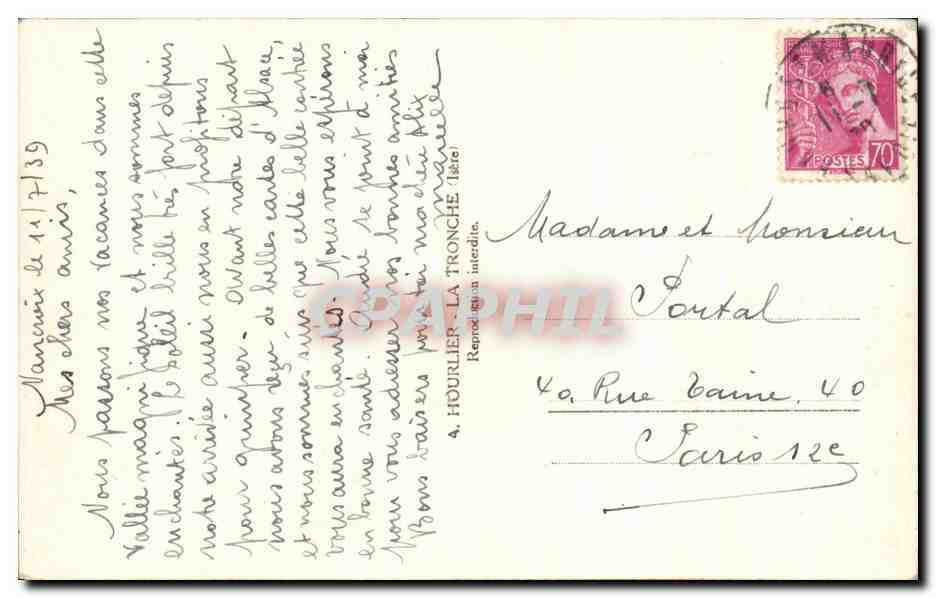 Nancroix le 11/7/39
Mes chers amis,
Nous passons nos vacances dans cette
vallée magnifique et nous sommes
enchantés. Le soleil brille très fort depuis
notre arrivée aussi nous en profitons
pour grimper. Avant notre départ
nous avons reçu de belles cartes d'Alsace,
et nous sommes sûrs que cette belle contrée
vous aura enchantés. Nous vous espérons
en bonne santé. André se joint à moi
pour vous adresser nos bonnes amitiés
Bons baisers pour toi ma chère Alix
Marcelle
4. HOURLIER - LA TRONCHE (Isère)
Reproduction interdite.
POSTES 70
Madame et Monsieur
Portal
40, Rue Taine, 40
Paris 12e
CPAPHIL